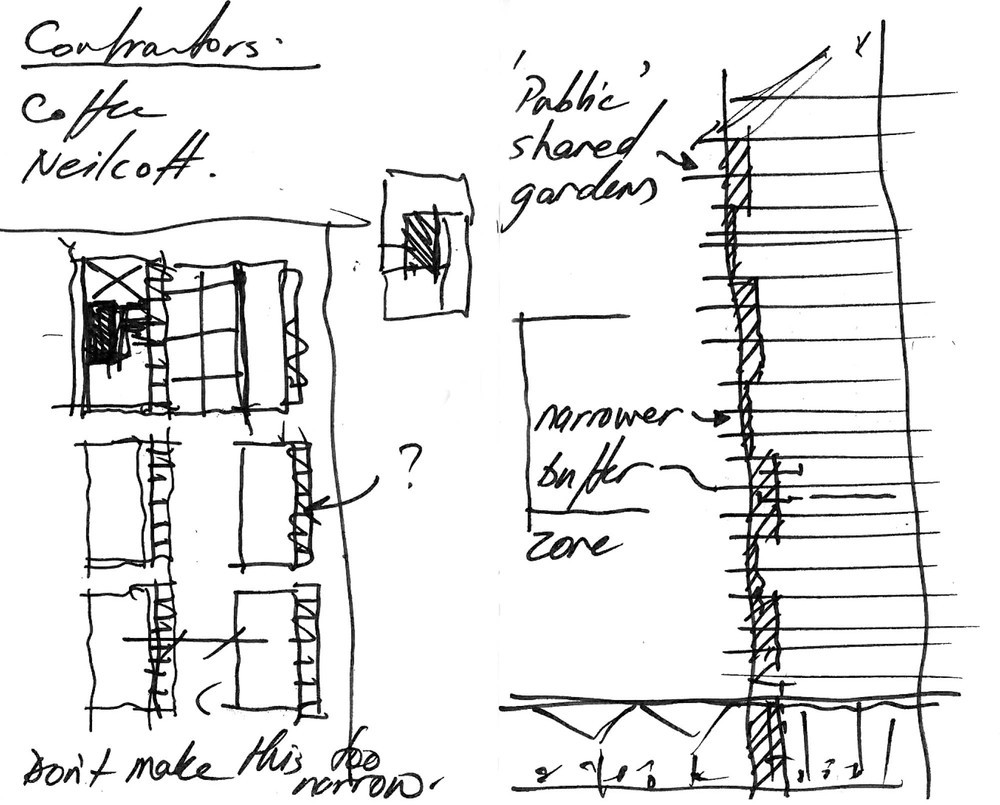 Contractors:
Coffee
Neilcott.
?
Don't make this too
narrow.
'Public'
shared
gardens
narrower
buffer
zone